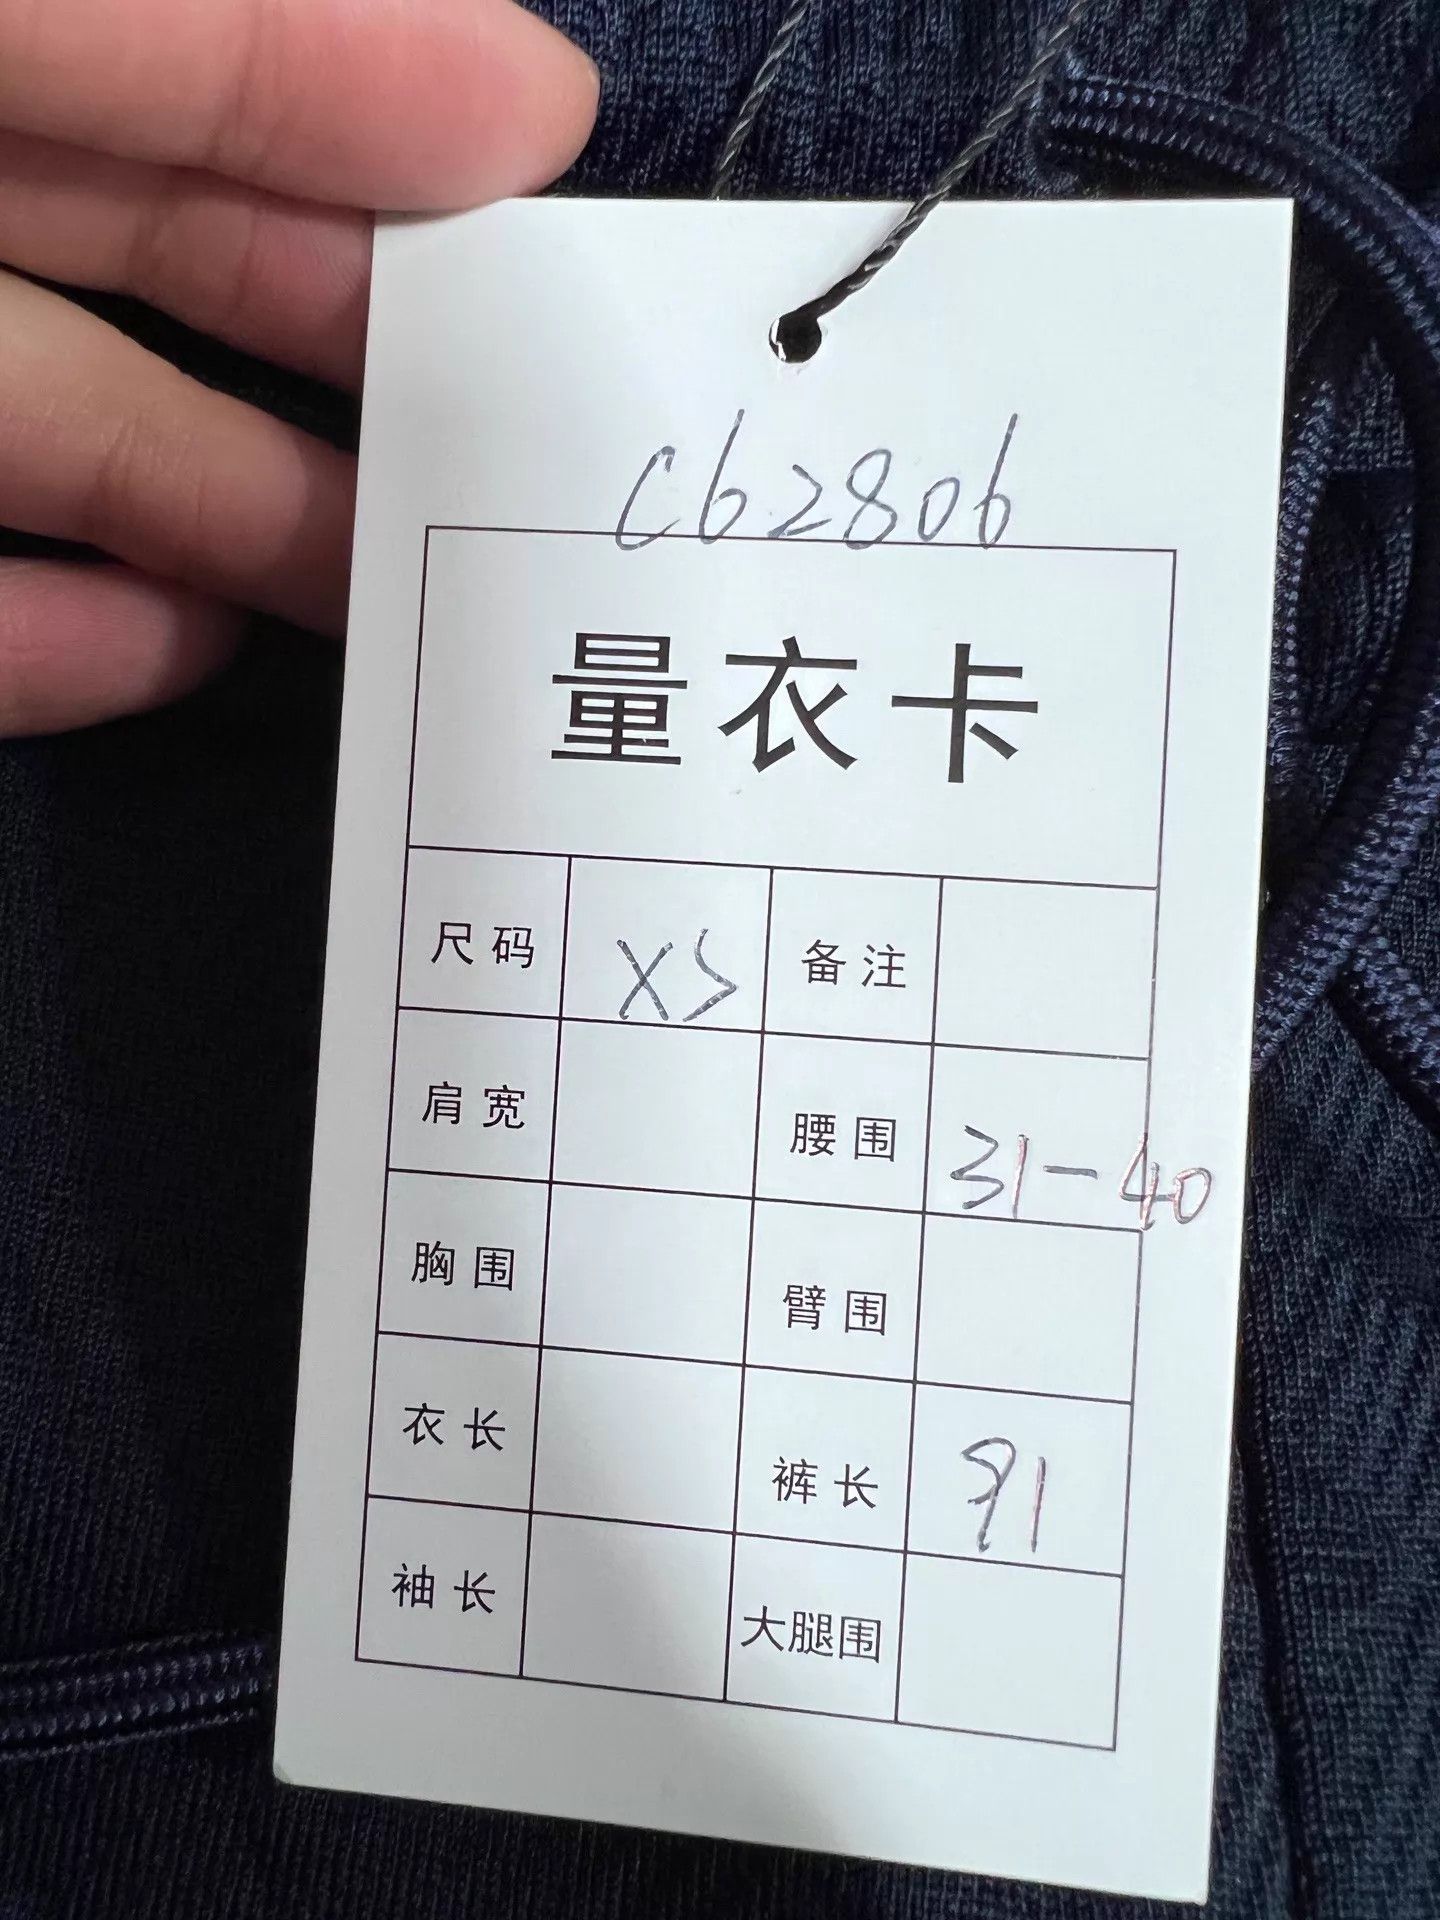 C62806
量衣卡
尺码 XS 备注
肩宽 腰围 31-40
胸围 臂围
衣长 裤长 91
袖长 大腿围